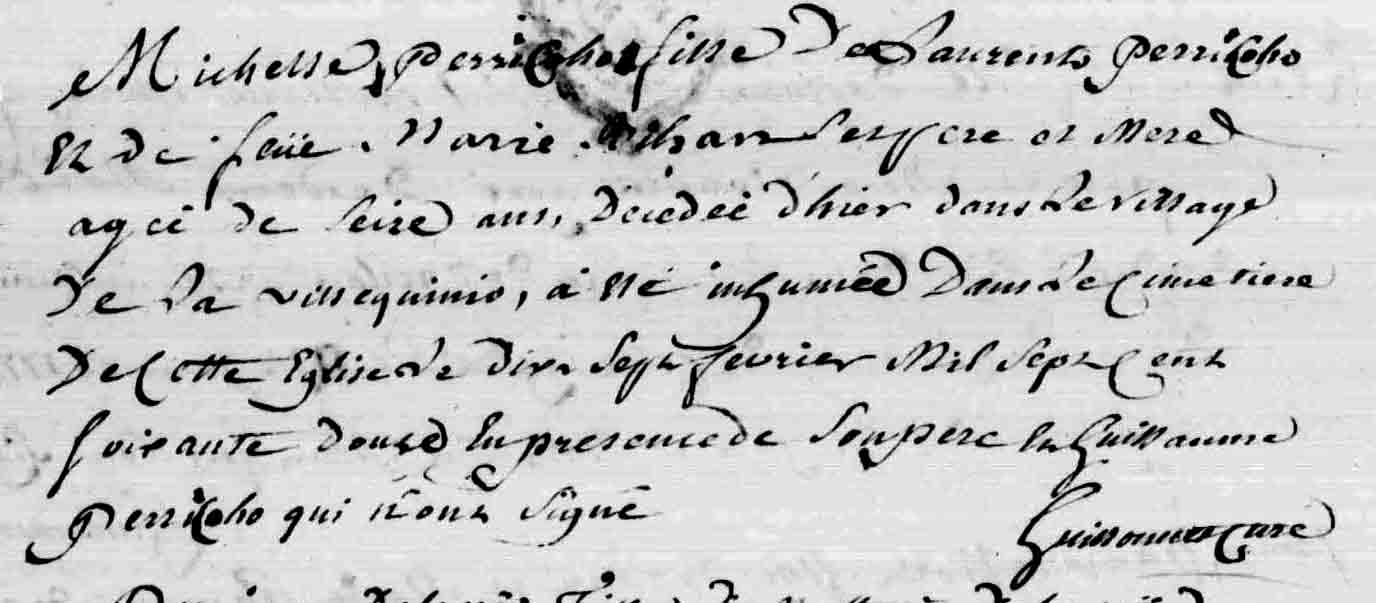 Michelle perricho fille De Laurent perricho
Et De feüe Marie ses pere et Mere
agéé de seize ans, Décedeé d'hier dans Le village
De La villequinio, á Eté inhumée Dans Le Cimetiere
De Cette Eglise Le Dix sept fevrier Mil sept Cent
soixante Douze En presence de son pere Et Guillaume
perricho qui n'ont signé
Curé